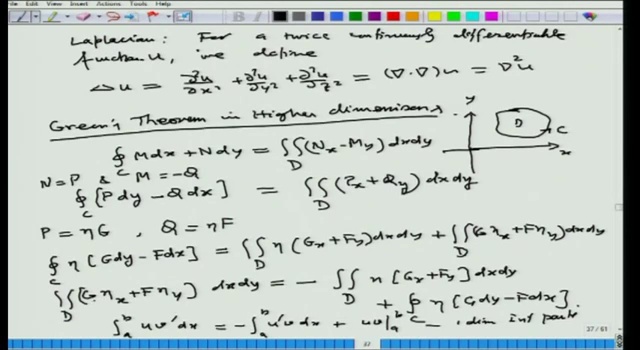 File Edit View Insert Actions Tools Help
Laplacian: For a twice continuously differentiable
function u, we define
Δu = ∂²u/∂x² + ∂²u/∂y² + ∂²u/∂z² = (∇·∇)u = ∇²u
Green's Theorem in Higher dimensions
y
D
C
x
∮_C Mdx + Ndy = ∬_D (N_x - M_y) dxdy
N = P & M = -Q
∮_C [Pdy - Qdx] = ∬_D (P_x + Q_y) dxdy
P = ηG , Q = ηF
∮_C η[Gdy - Fdx] = ∬_D η(G_x + F_y)dxdy + ∬_D (Gη_x + Fη_y)dxdy
∬_D (G η_x + F η_y) dxdy = - ∬_D η[G_x + F_y]dxdy
+ ∮_C η[Gdy - Fdx].
∫_a^b uv'dx = -∫_a^b u'v dx + uv|_a^b , 1 dim int parts
37 / 61
37